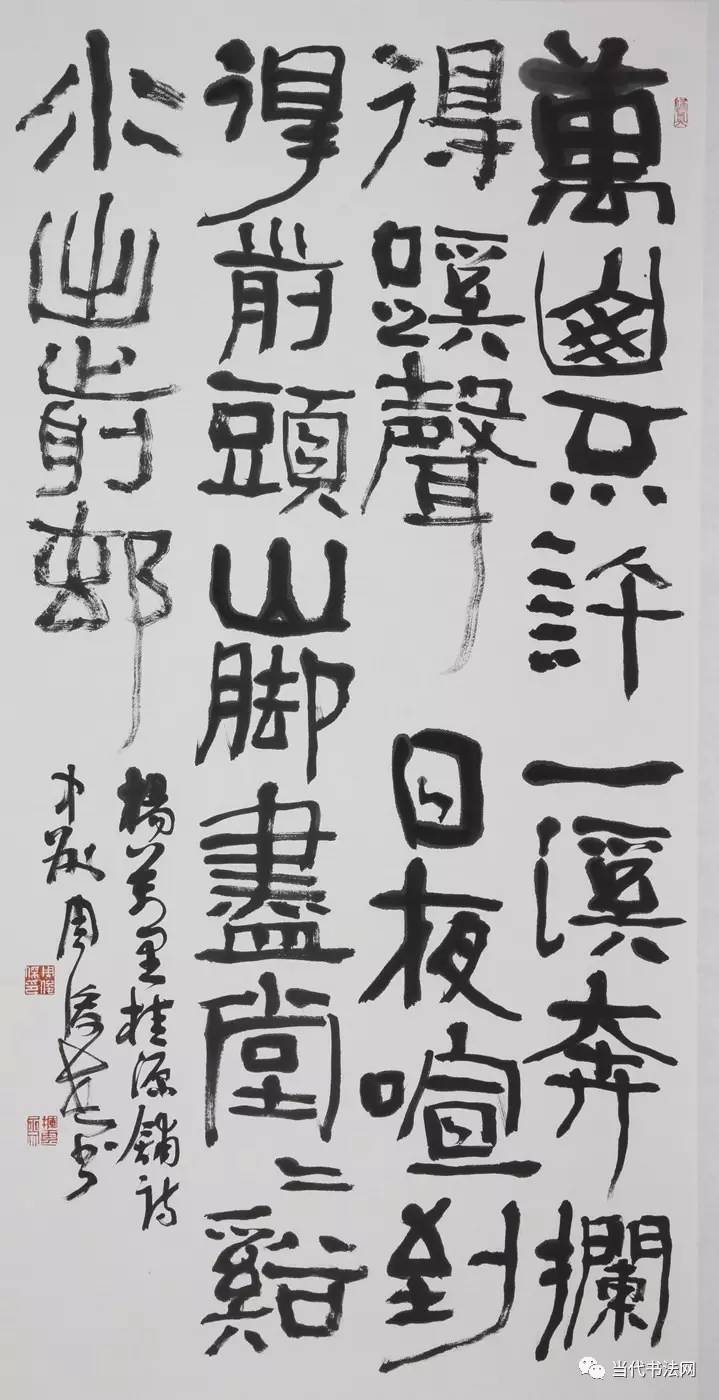 萬山不許一溪奔攔
得蹊聲日夜喧到
得前頭山脚盡堂〻谿
水出前邨
楊萬里桂源鋪詩
周俊杰書
当代书法网